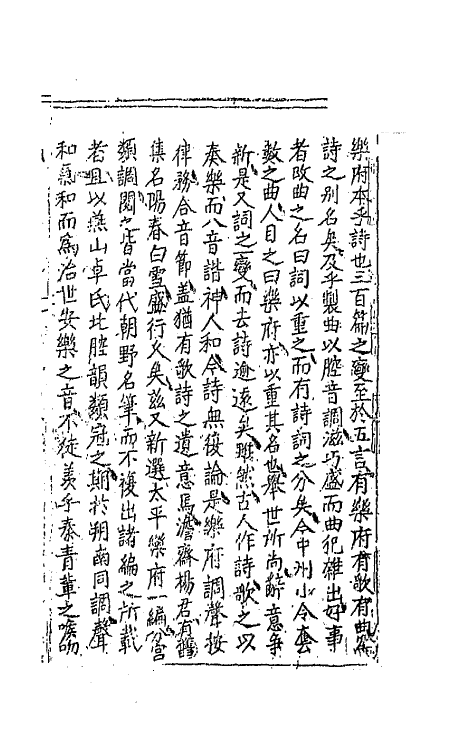 樂府本乎詩也三百篇之變至於五言有樂府有歌有曲為
詩之别名矣及乎製曲以腔音調滋巧盛而曲犯雜出好事
者改曲之名曰詞以重之而有詩詞之分矣今中州小令套
數之曲人目之曰樂府亦以重其名也舉世所尚辭意爭
新是又詞之一變而去詩逾遠矣雖然古人作詩歌之以
奏樂而八音諧神人和今詩無復論是樂府調聲按
律務合音節盖猶有歌詩之遺意焉澹齋楊君有舊
集名陽春白雪盛行久矣兹又新選太平樂府一編分宫
類調閱之皆當代朝野名筆而不複出諸編之所載
者且以燕山卓氏北腔韻類冠之期於朔南同調聲
和氣和而爲治世安樂之音不徒羡乎秦青輩之喉吻